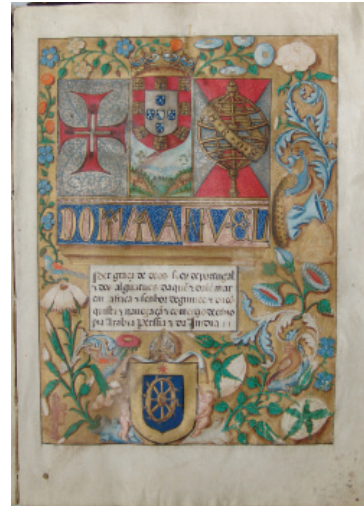 DOM MANVEL
Per graça de deos Rey de portugal
& dos algarues daquẽ & dalẽ mar
em africa & senhor de guinee & da cõ
quista & nauegaçã & comercio de ethio
pia Arabia Perssia & da Jmdia